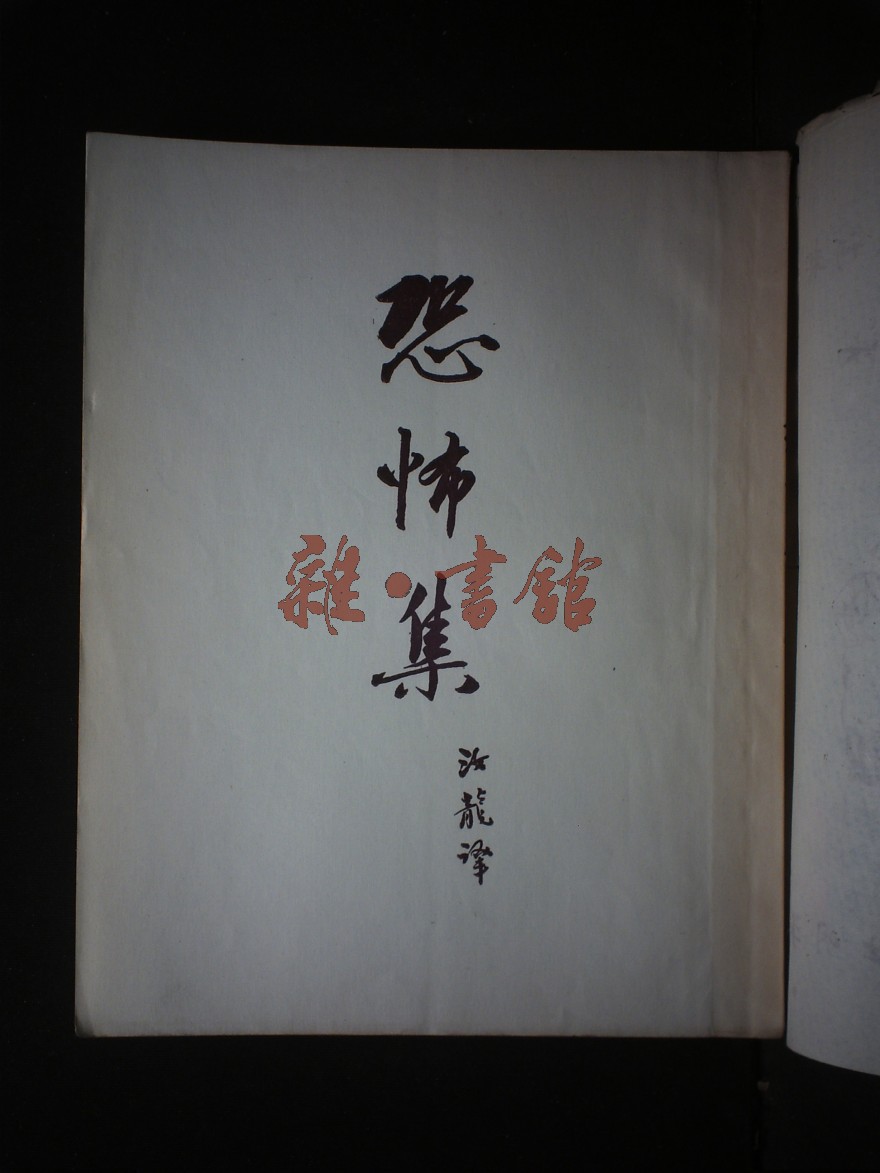 恐怖集
汝龍译
雜·書館